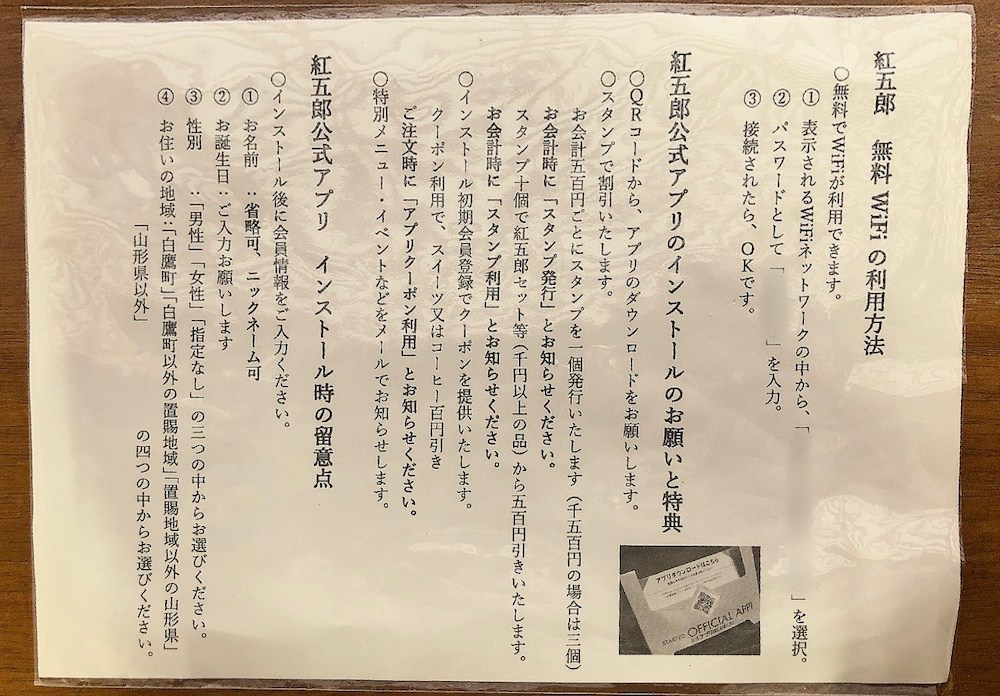 紅五郎　無料WiFiの利用方法
○無料でWiFiが利用できます。
① 表示されるWiFiネットワークの中から、「　　　」を選択。
② パスワードとして「　　　」を入力。
③ 接続されたら、OKです。
紅五郎公式アプリのインストールのお願いと特典
○QRコードから、アプリのダウンロードをお願いします。
○スタンプで割引いたします。
お会計五百円ごとにスタンプを一個発行いたします（千五百円の場合は三個）
お会計時に「スタンプ発行」とお知らせください。
スタンプ十個で紅五郎セット等（千円以上の品）から五百円引きいたします。
お会計時に「スタンプ利用」とお知らせください。
○インストール初期会員登録でクーポンを提供いたします。
クーポン利用で、スイーツ又はコーヒー百円引き
ご注文時に「アプリクーポン利用」とお知らせください。
○特別メニュー・イベントなどをメールでお知らせします。
紅五郎公式アプリ　インストール時の留意点
○インストール後に会員情報をご入力ください。
① お名前　：省略可、ニックネーム可
② お誕生日：ご入力お願いします
③ 性別　　：「男性」「女性」「指定なし」の三つの中からお選びください。
④ お住いの地域：「白鷹町」「白鷹町以外の置賜地域」「置賜地域以外の山形県」
「山形県以外」　の四つの中からお選びください。
アプリダウンロードはこちら
STARTED OFFICIAL APP!